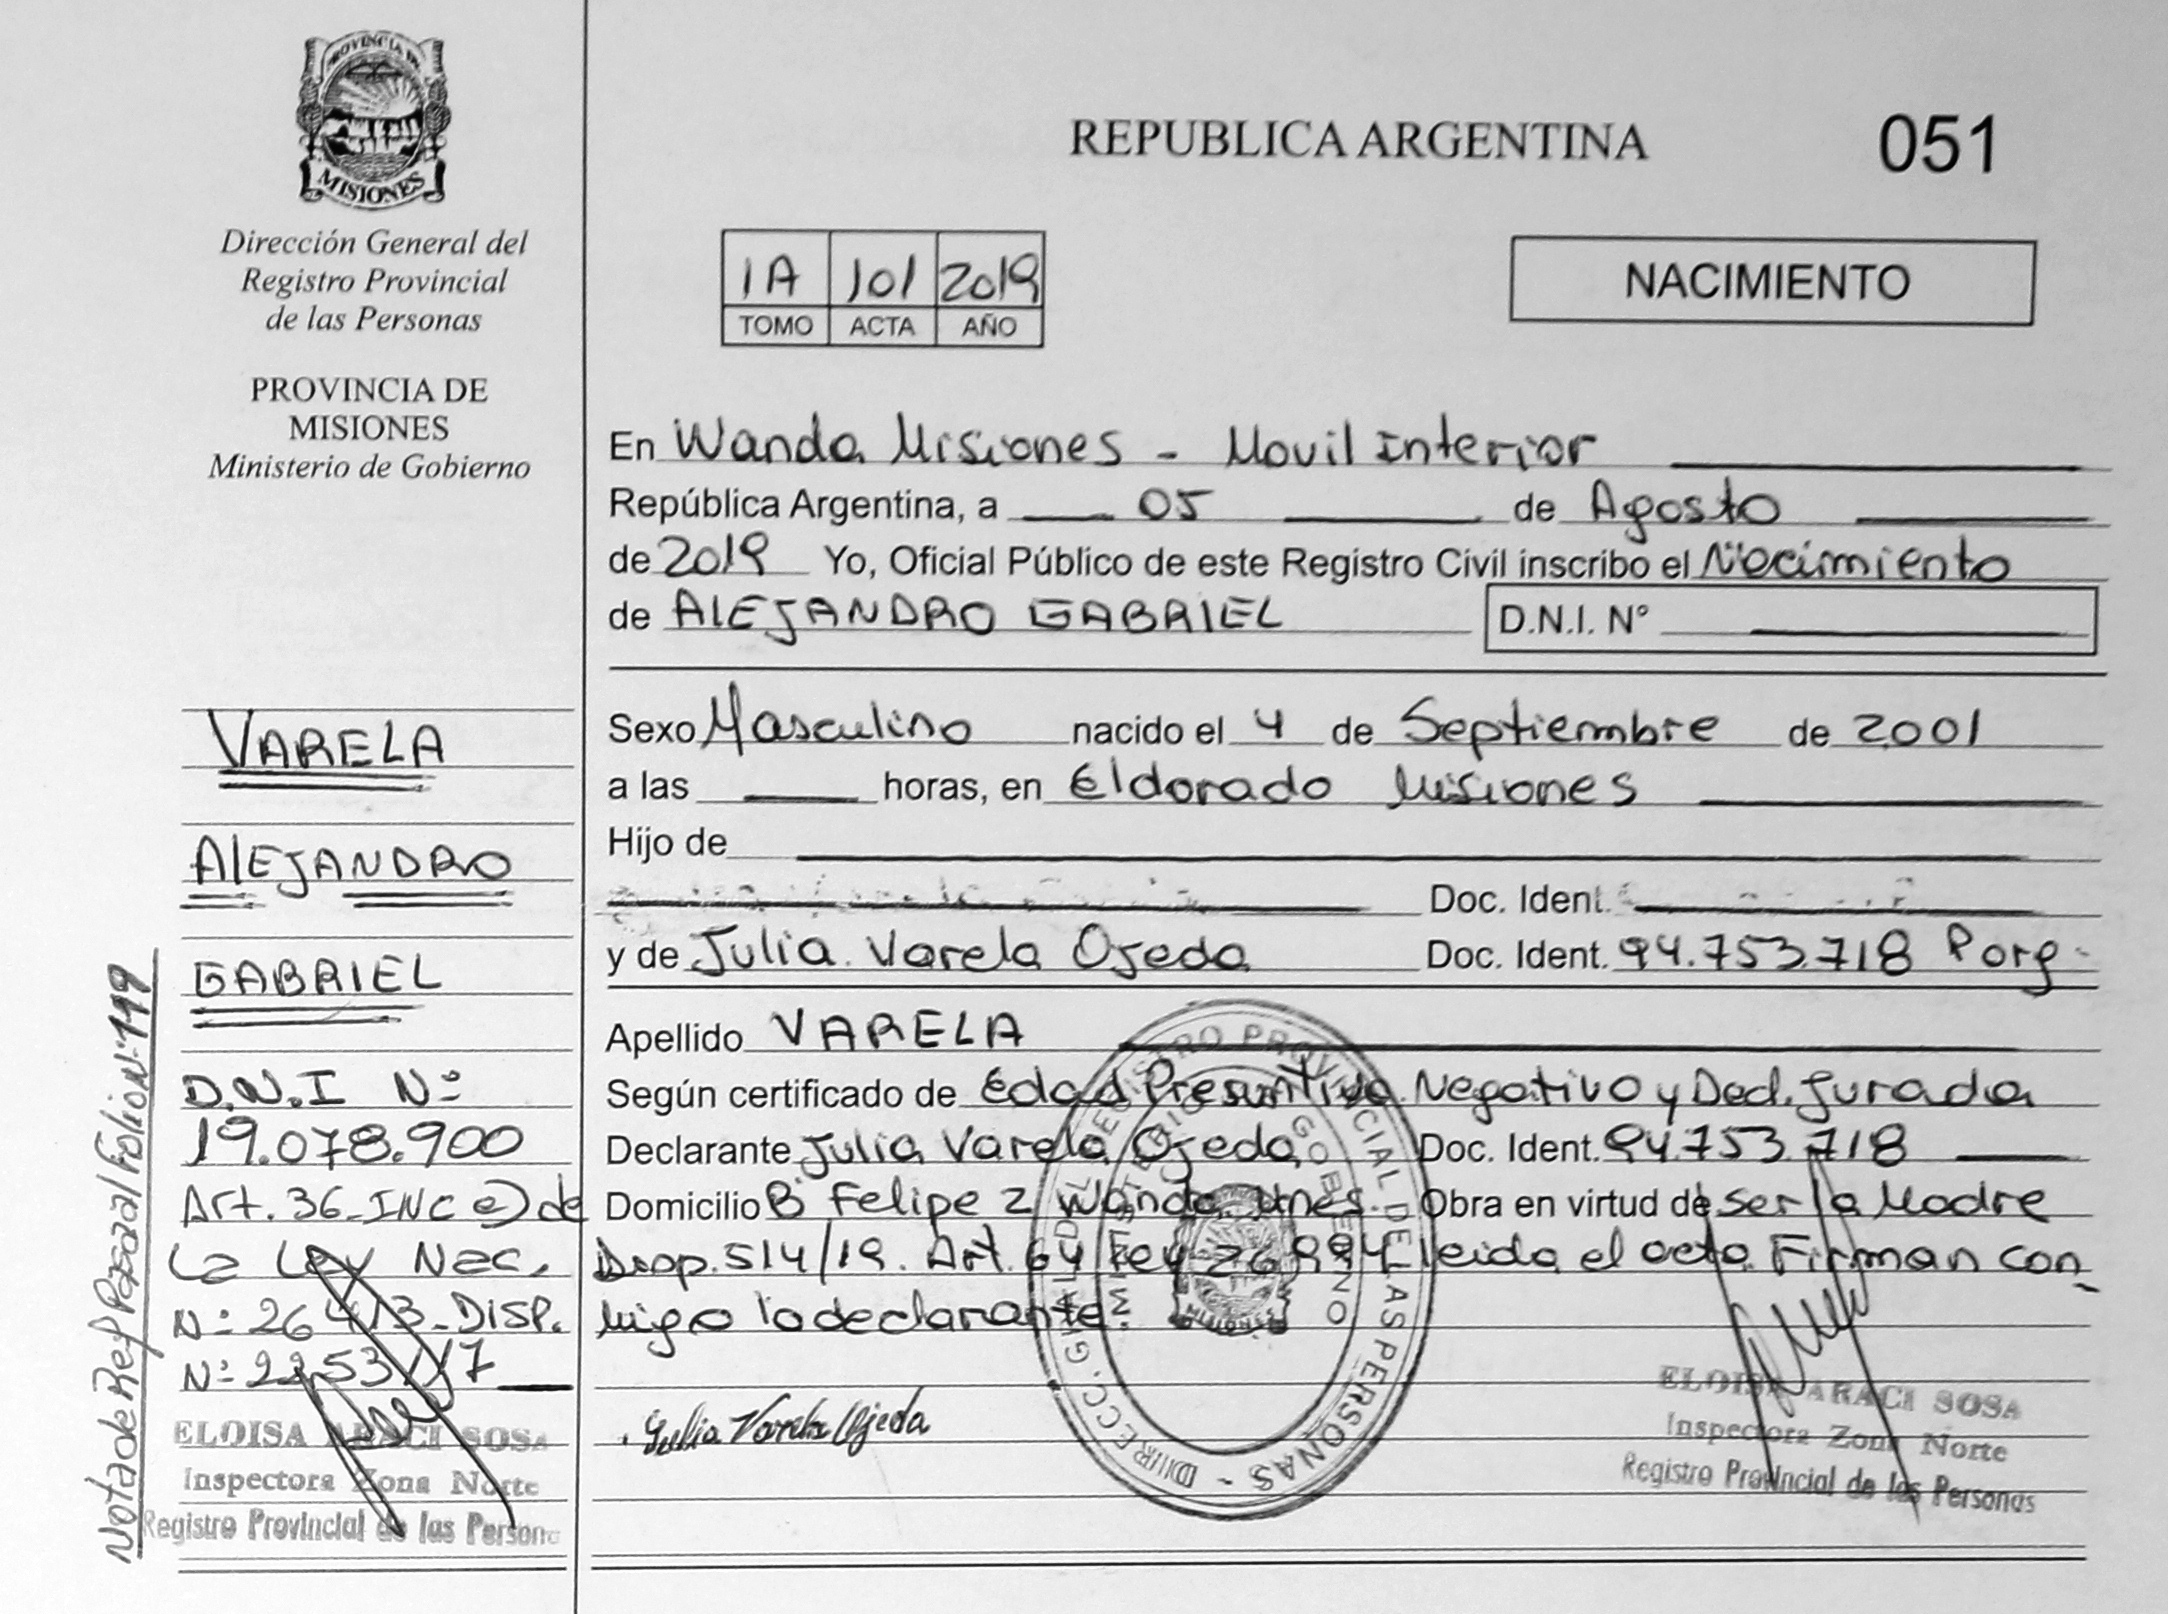 PROVINCIA DE
MISIONES
Dirección General del
Registro Provincial
de las Personas
PROVINCIA DE
MISIONES
Ministerio de Gobierno
VARELA
AlEJANDRO
GABRIEL
D.N.I Nº
19.078.900
Art. 36_INC e) de
La Ley Nac.
Nº 26413_DISP.
Nº 2253/17
ELOISA ARACI SOSA
Inspectora Zona Norte
Registro Provincial de las Persona
Nota de Ref Pasa al Folio Nº 119
REPUBLICA ARGENTINA
051
1A 101 2019
TOMO ACTA AÑO
NACIMIENTO
En Wanda Misiones - Movil Interior
República Argentina, a 05 de Agosto
de 2019 Yo, Oficial Público de este Registro Civil inscribo el Nacimiento
de AlEJANDRO GABRIEL D.N.I. Nº
Sexo Masculino nacido el 4 de Septiembre de 2001
a las horas, en Eldorado Misiones
Hijo de
Doc. Ident.
y de Julia Varela Ojeda Doc. Ident. 94.753.718 Parg-
Apellido VARELA
Según certificado de Edad Presuntiva Negativo y Decl. Jurada
Declarante Julia Varela Ojeda Doc. Ident. 94.753.718
Domicilio Bº Felipe 2 Wanda Mnes. Obra en virtud de ser la Madre
Disp. 514/19. Art. 64 Ley 26994 leida el acta Firman con_
migo la declarante.
Julia Varela Ojeda
DIRECC. GRAL. DEL REGISTRO PROVINCIAL DE LAS PERSONAS -
MINISTERIO GOBIERNO
MISIONES
ELOISA ARACI SOSA
Inspectora Zona Norte
Registro Provincial de las Personas